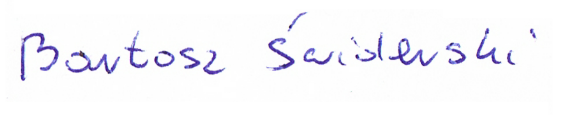 Bartosz Świderski